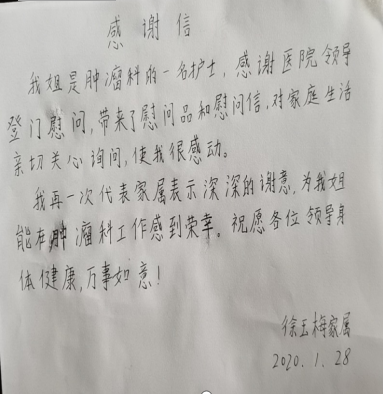 感谢信
我姐是肿瘤科的一名护士，感谢医院领导
登门慰问，带来了慰问品和慰问信，对家庭生活
亲切关心询问，使我很感动。
我再一次代表家属表示深深的谢意，为我姐
能在肿瘤科工作感到荣幸。祝愿各位领导身
体健康，万事如意！
徐玉梅家属
2020.1.28